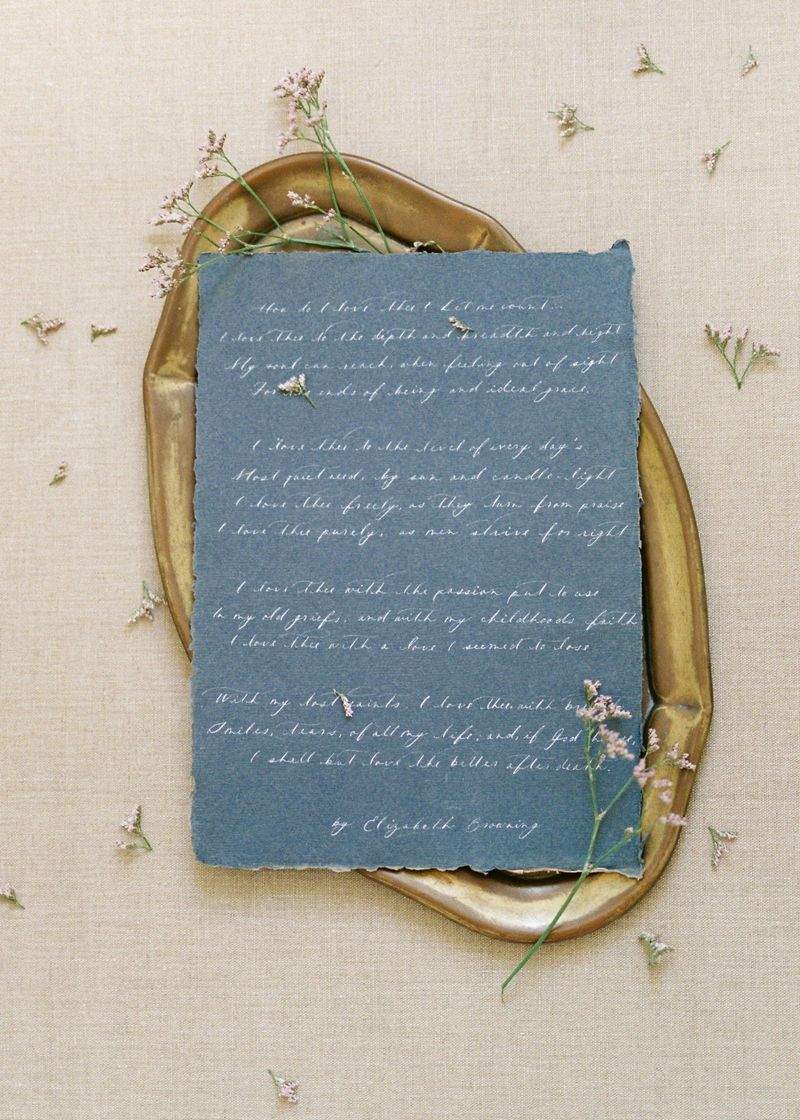 How do I love thee? Let me count...
I love thee to the depth and breadth and hight
My soul can reach, when feeling out of sight
For ends of being and ideal grace.
I love thee to the level of every day's
Most quiet need, by sun and candle-light
I love thee freely, as they turn from praise
I love thee purely, as men strive for right
I love thee with the passion put to use
In my old griefs, and with my childhoods faith
I love thee with a love I seemed to lose
With my lost saints. I love thee with
Smiles, tears, of all my life; and, if God
I shall but love thee better after death.
by Elizabeth Browning